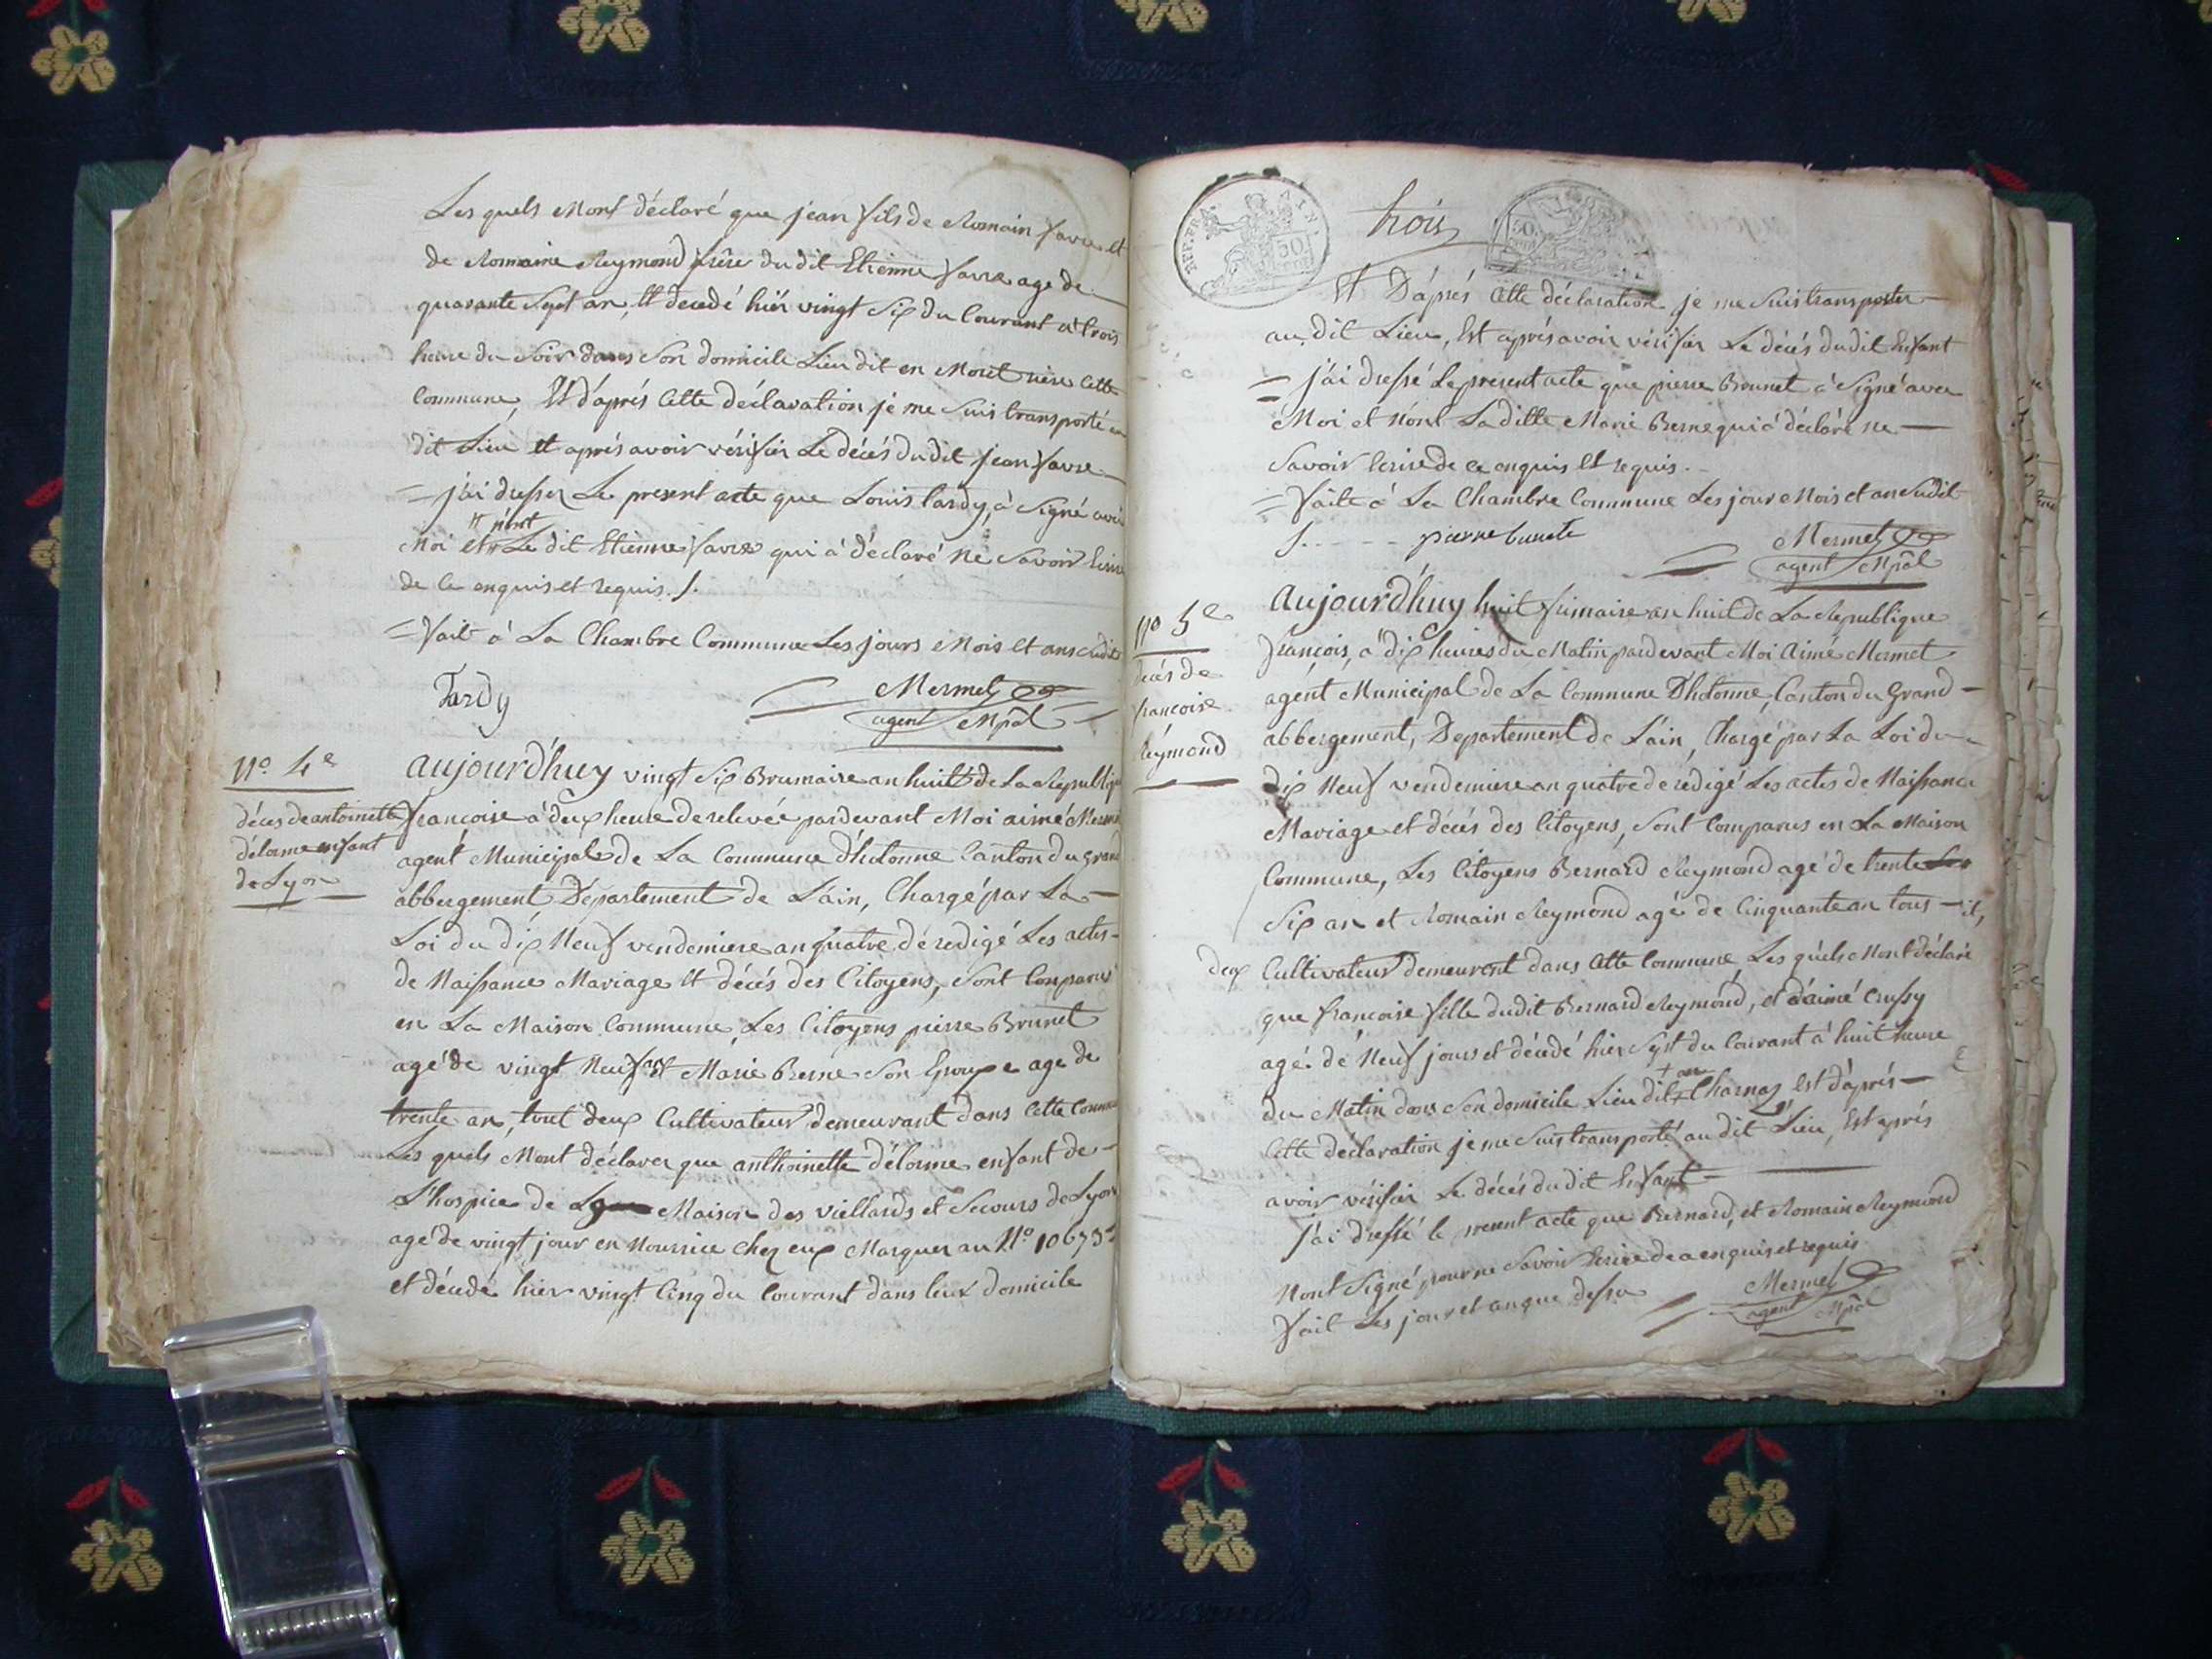 Les quels Mont déclaré que jean fils de Romain favre et
de Romaine Reymond frère du dit Etienne favre age de
quarante Sept an, Et decedé hiér vingt Six du Courant à trois
heure du Soir dans Son domicile Lieu dit en Mont cette
Commune, Et d'áprés Cette déclaration je me Suis transporté au
dit Lieu et aprés avoir vérifiér Le décés du dit jean favre
= j'ái dresser Le present acte que Louis tardy, à Signé avec
Moi et n'ont Le dit Etienne favre qui à déclaré Ne Savoir Ecrire
de Ce enquis et requis ./.
= fait à La Chambre Commune Les jours Mois et an Sudits
Tardy
Mermet
agent Mpãl
No. 4e
déces de antoinette
délorme enfant
de Lyon
aujourd'huy vingt Six Brumaire an huit de La Republique
francoise à deux heure de relevée pardevant Moi aimé Mermet
agent Municipal de La Commune d'hotonne Canton du grand
abbergement Département de L'ain, Chargé par La
Loi du dix Neuf vendemiere an quatre dé redigé Les actes
de Naissance Mariage Et décés des Citoyens, Sont Comparus
en La Maison Commune, Les Citoyens pierre Brunet
agé de vingt Neuf an Et Marie Berne Son Epouse age de
trente an, tout deux Cultivateur demeurant dans Cette Commune
Les quels Mont déclarer que anthoinette délorme enfant de
L'hospice de Maison des viellards et Secours de Lyon
agé de vingt jour en Nourrice chez eux Marquer au No. 10673
et décédé hier vingt Cinq du Courant dans leur domicile
REP. FRA.
AIN.
50
trois
50
Et D'áprés Cette déclaration je me Suis transporter
au dit Lieu, Est aprés avoir vérifiér Le décés du dit Enfant
= j'ái dressé Le present acte que pierre Brunet à Signé avec
Moi et N'ont Ladite Marie Berne qui à déclaré ne
Savoir Ecrire de ce enquis Et requis.
= faite à La Chambre Commune Les jour Mois et an Sudit
pierre bunete
Mermet
agent Mpãl
No 5e
décés de
francoise
Reymond
aujourd'huy huit frimaire an huit de La Republique
françois, à dix heures du Matin pardevant Moi Aimé Mermet
agent Municipal de La Commune D'hotonne, Canton du Grand
abbergement, Departement de L'ain, Chargé par La Loi du
dix Neuf vendemiere an quatre de rédigé Les actes de Naissance
Mariage et décés des Citoyens, Sont Comparus en La Maison
Commune, Les Citoyens Bernard Reymond agé de trente
Six an et Romain Reymond agé de Cinquante an tous
deux Cultivateur demeurent dans Cette Commune, Les quéls Mont déclaré
que francoise fille dudit Bernard Reymond, et d'aimé Crussy
agé de Neuf jours et décédé hier Sept du Courant à huit heure
du Matin dans Son domicile Lieu dit en Charnay Est d'áprés
Cette déclaration je me Suis transporté au dit Lieu, Est aprés
avoir vérifiér Le décés du dit Enfant
j'ái dressé le present acte que Bernard, et Romain Reymond
Nont Signé pour ne Savoir Ecrire de ce enquis et requis
fait Les jour et an que dessu
Mermet
agent Mpãl